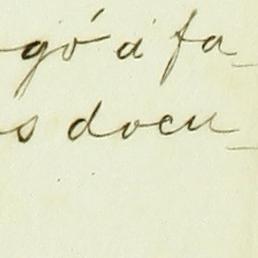 gó á fa-
s docu-